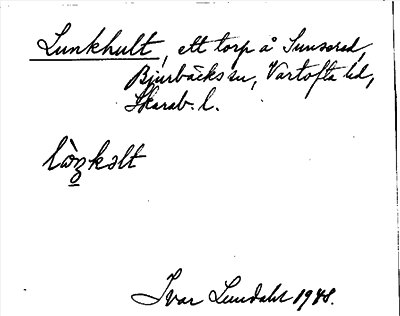 Lunkhult, ett torp å Sunnered,
Bjurbäcks sn, Vartofta hd,
Skarab. l.
lòŋkəlt
Ivar Lundahl 1948.